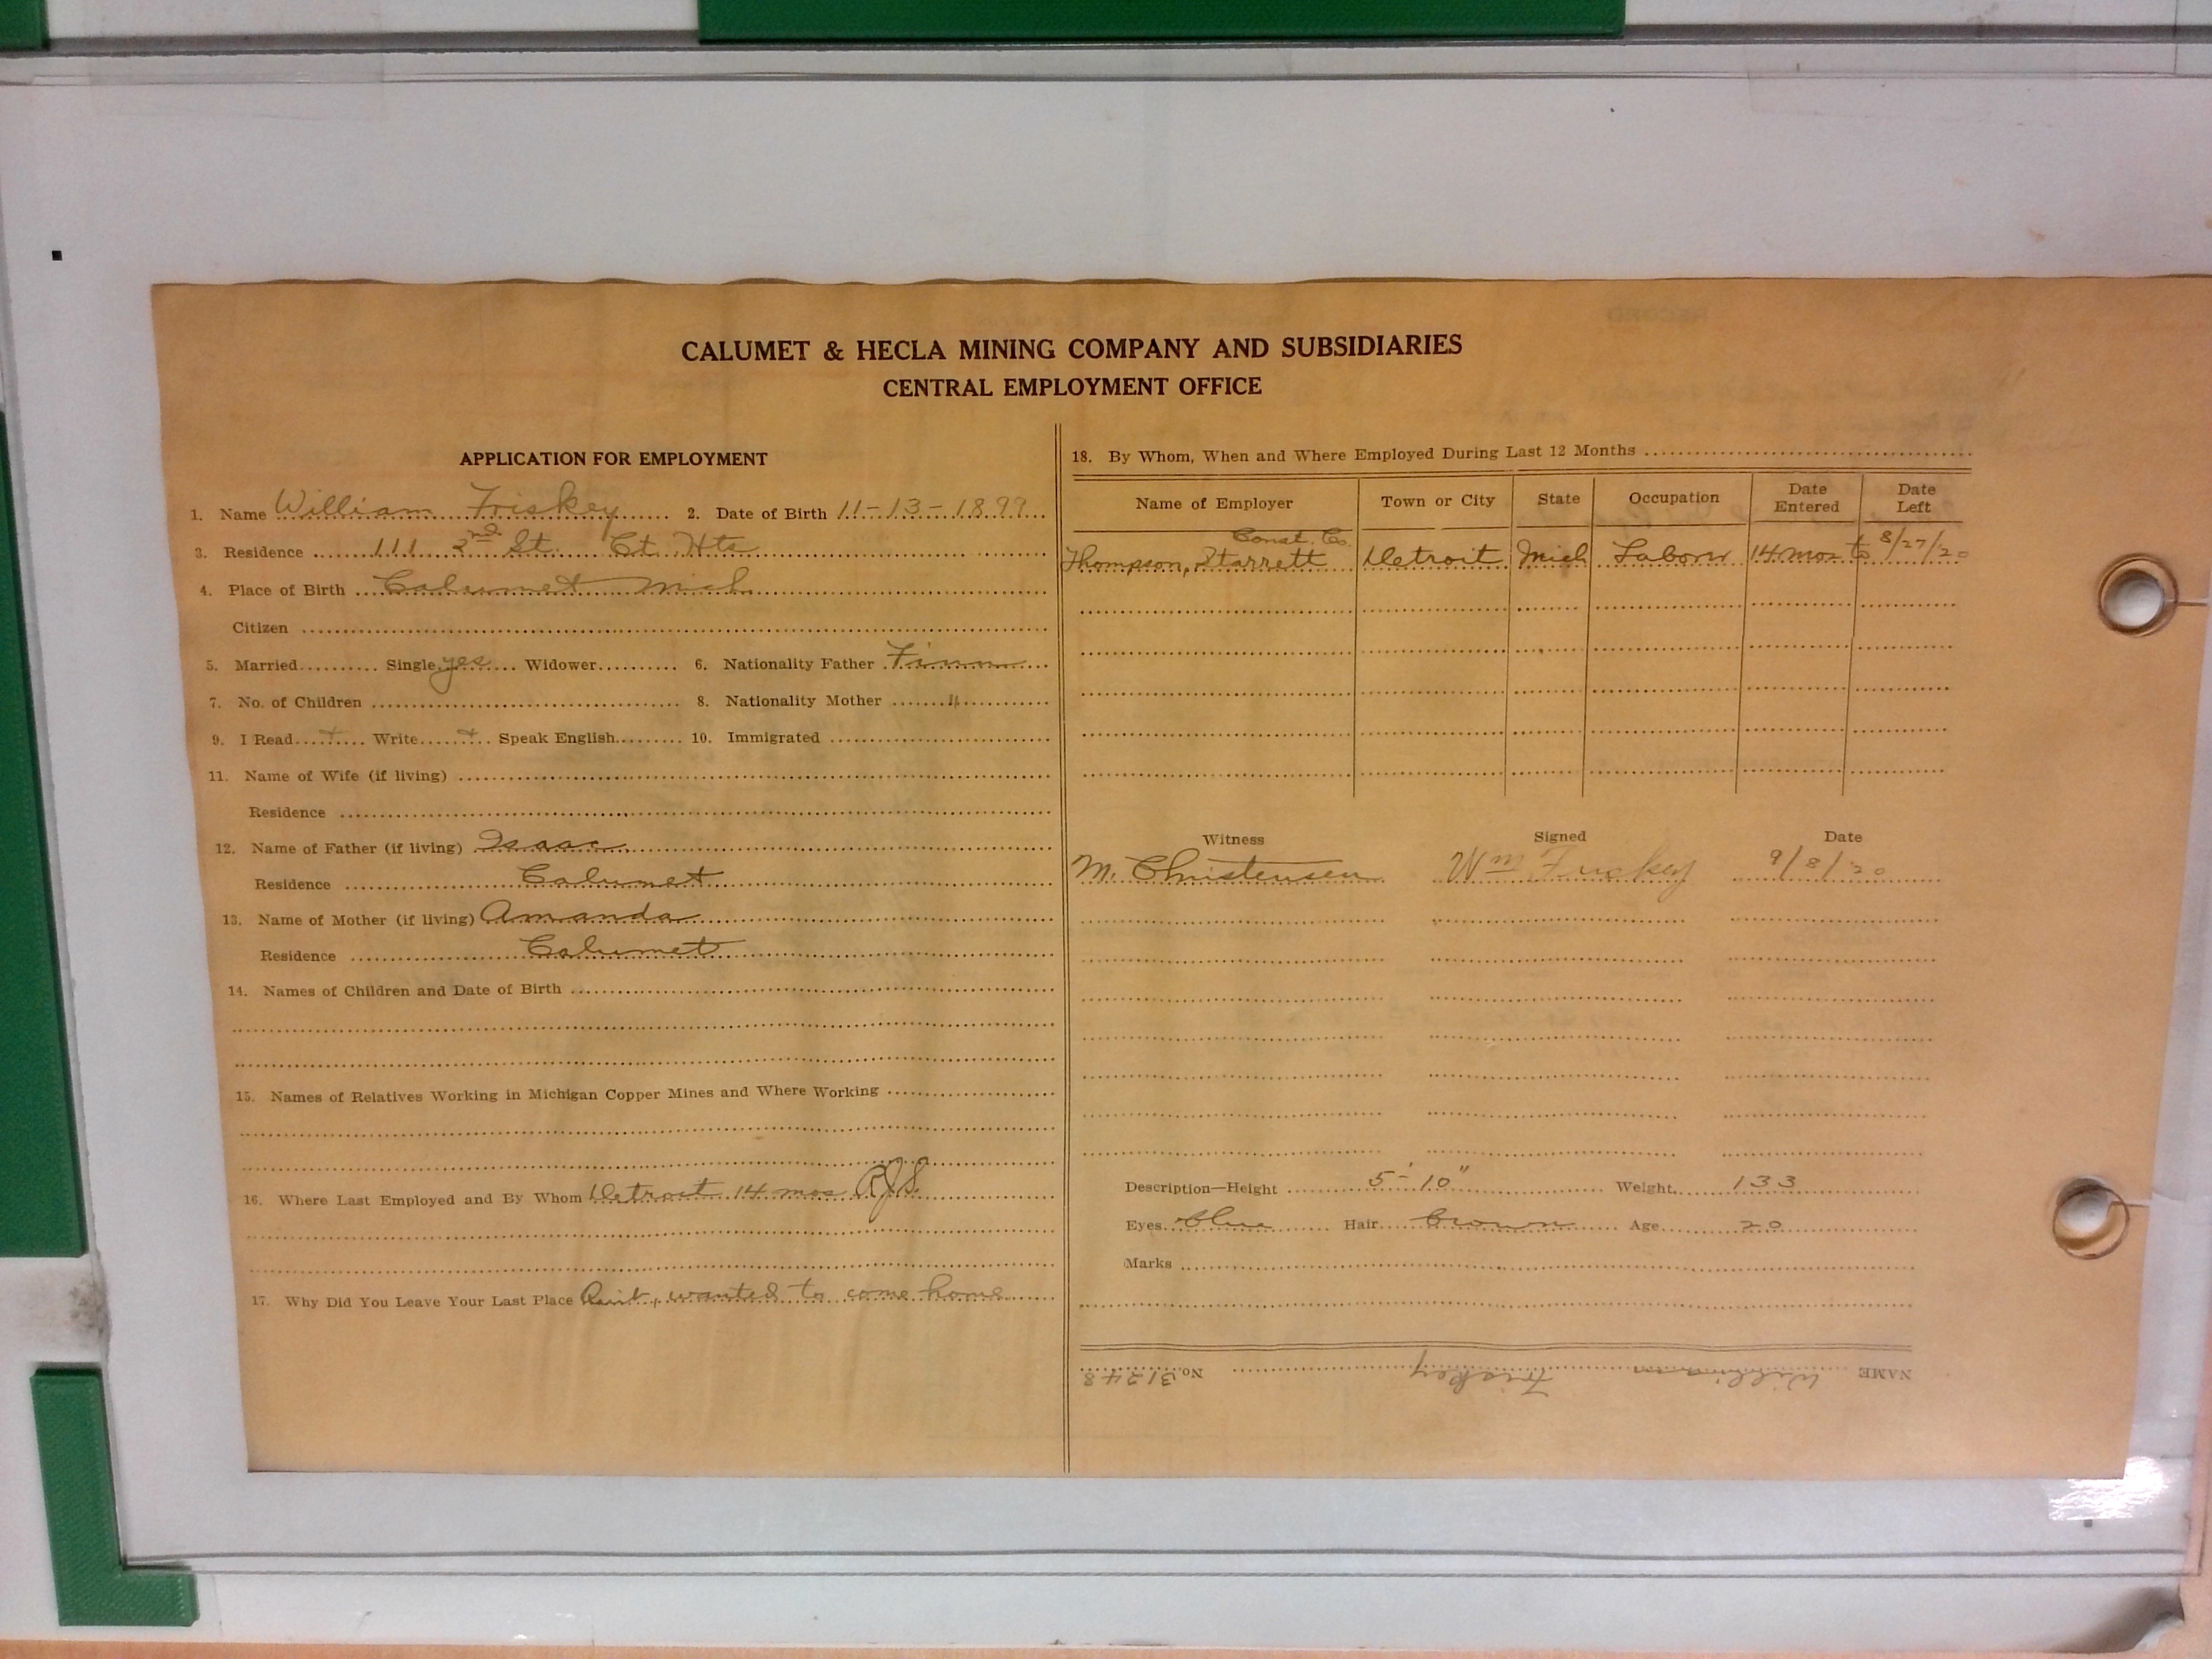 CALUMET & HECLA MINING COMPANY AND SUBSIDIARIES
CENTRAL EMPLOYMENT OFFICE
APPLICATION FOR EMPLOYMENT
1. Name William Friskey 2. Date of Birth 11-13-1899
3. Residence 111 2nd St. Ct. Hts
4. Place of Birth Calumet Mich
Citizen
5. Married Single yes Widower 6. Nationality Father Finn
7. No. of Children 8. Nationality Mother "
9. I Read + Write + Speak English 10. Immigrated
11. Name of Wife (if living)
Residence
12. Name of Father (if living) Isaac
Residence Calumet
13. Name of Mother (if living) Amanda
Residence Calumet
14. Names of Children and Date of Birth
15. Names of Relatives Working in Michigan Copper Mines and Where Working
16. Where Last Employed and By Whom Detroit 14 mos RJS
17. Why Did You Leave Your Last Place Quit, wanted to come home
18. By Whom, When and Where Employed During Last 12 Months
Name of Employer Town or City State Occupation Date Entered Date Left
Const. Co.
Thompson, Starrett Detroit Mich Laborer 14 mos to 8/27/20
Witness Signed Date
M. Christensen Wm Friskey 9/8/20
Description—Height 5'-10" Weight 133
Eyes blue Hair brown Age 20
Marks
NAME William Friskey No. 31248